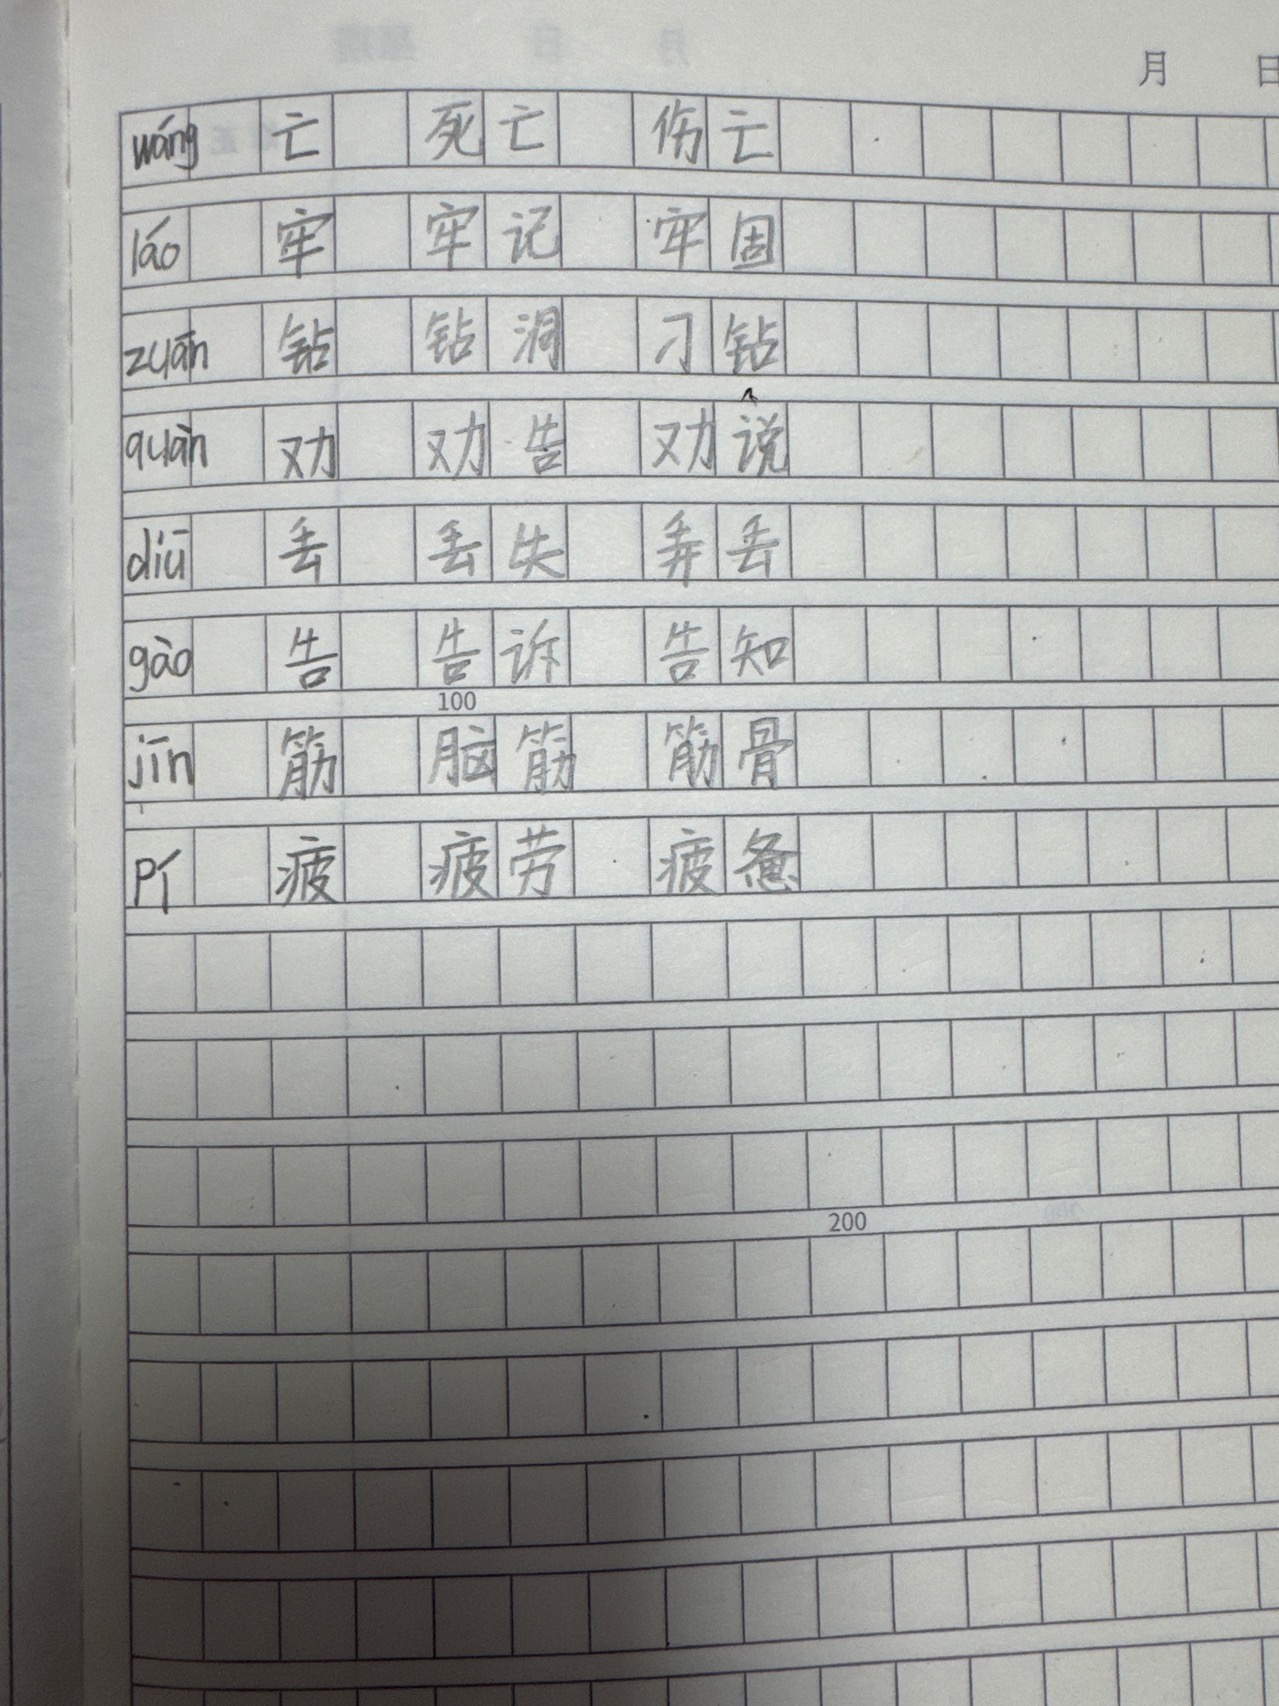 月 日
wáng 亡 死亡 伤亡
láo 牢 牢记 牢固
zuān 钻 钻洞 刁钻
quàn 劝 劝告 劝说
diū 丢 丢失 弄丢
gào 告 告诉 告知
100
jīn 筋 脑筋 筋骨
pí 疲 疲劳 疲惫
200